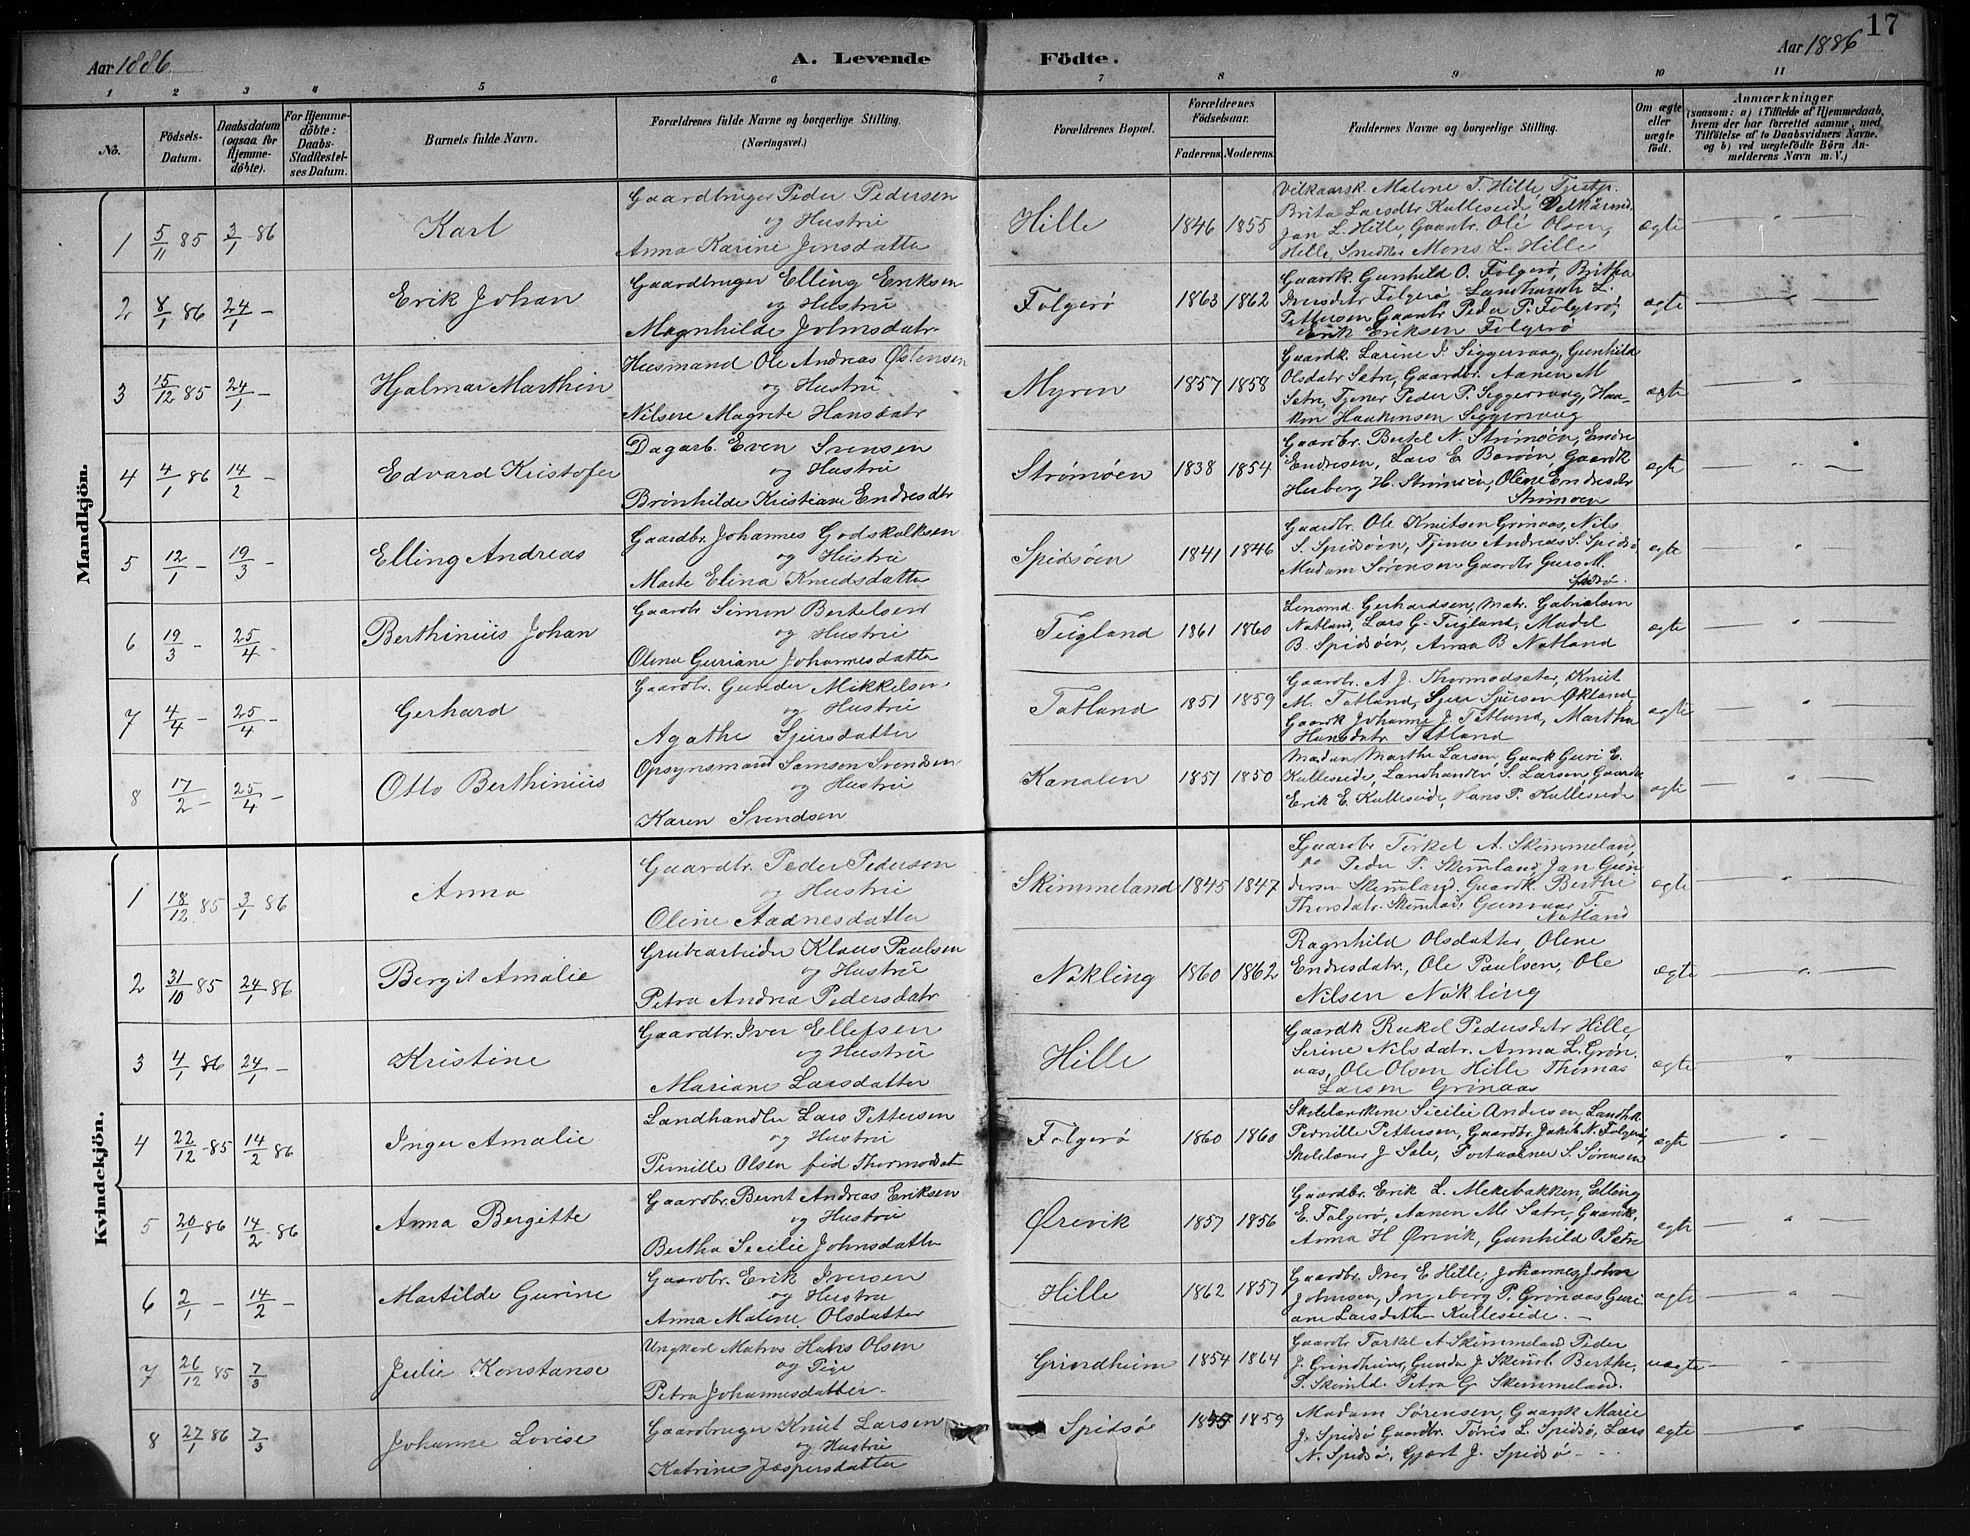 17
Aar 1886
A. Levende
Födte.
Aar 1886
1 2 3 4 5 6 7 8 9 10 11
No.
Födsels-Datum.
Daabsdatum (ogsaa for Hjemme-döbte).
For Hjemme-döbte: Daabs-Stadfæstel-ses Datum.
Barnets fulde Navn.
Forældrenes fulde Navne og borgerlige Stilling. (Næringsvei.)
Forældrenes Bopæl.
Forældrenes Födselsaar.
Faderens. Moderens.
Faddernes Navne og borgerlige Stilling.
Om ægte eller uægte födt.
Anmærkninger
(saasom: a) i Tilfælde af Hjemmedaab, hvem der har forrettet samme, med Tilföielse af to Daabsvidners Navne. og b) ved uægtefödte Börn An-melderens Navn m. V.)
Mandkjön.
1 5/11 85 3/1 86 Karl
Gaardbruger Peder Pedersen
og Hustru
Anna Karine Jensdatter
Hille 1846 1855
Malene T. Hille,
Brita Larsdtr Kulleseide,
Jan L. Hille, Gaardbr. Ole Olsen,
Hille, Mons L. Hille
ægte
2 8/1 86 24/1 - Erik Johan
Gaardbruger Elling Eriksen
og Hustru
Magnhilde Johnsdatr
Folgerø 1863 1862
Gaardk. Gunhild O. Folgerø, Britha
Iversdatr Folgerø Landhandl L.
Pettersen Gaardbr Peder P. Folgerø,
Erik Eriksen Folgerø
ægte
3 15/12 85 24/1 - Hjalmar Marthin
Husmand Ole Andreas Østensen
og Hustru
Nilsine Magrete Hansdatr
Myren 1857 1858
Gaardk. Larine J. Siggervaag, Gunhild
Olsdatr Sætre, Gaardbr. Aanen M
Sætre, Tjener Peder P. Siggervaag, Haa-
kon Haakensen Siggervaag
ægte
4 4/1 86 14/2 - Edvard Kristofer
Dagarb. Even Svensen
og Hustru
Brønhilde Kristiane Endresdtr
Strømøen 1838 1854
Gaardbr. Bertel N. Strømøen, Endre
Endresen, Lars E. Børøen, Gaardk
Herborg H. Strømøen, Oline Endresdtr
Strømøen
ægte
5 12/1 - 19/3 - Elling Andreas
Gaardbr. Johannes Godskalksen
og Hustru
Marte Elina Knudsdatter
Spidsøen 1841 1846
Gaardbr. Ole Knutsen Grinaas, Nils
S. Spidsøen, Tjener Andreas S. Spidsø
Madam Sørensen Gaardbr Guro M.
Spidsø.
ægte
6 19/3 - 25/4 - Berthinius Johan
Gaardbr Simen Bertelsen
og Hustru
Olena Guriane Johannesdatter
Tugland 1861 1860
Lensmd. Gerhardsen, Gabrielsen
Natland, Lars G. Tugland, Madel
B. Spidsøen, Anna B Natland
ægte
7 4/4 - 25/4 - Gerhard
Gaardbr. Gunder Mikkelsen
og Hustru
Agathe Sjursdatter
Tatland 1851 1859
Gaardbr. A J. Thormodsæter, Knut
M. Tatland, Sjur Sjursen Økland,
Gaardk Johanne J. Tatland, Martha
Hansdatr Tatland
ægte
8 17/2 - 25/4 - Otto Berthinius
Opsynsmand Samson Svendsen
og Hustru
Karen Svendsen
Kanalen 1851 1850
Madam Marthe Larsen, Gaardk Guri E.
Kulleseide, Landhandler S. Larsen, Gaardbr
Erik E. Kulleseide, Hans P. Kulleseide
ægte
Kvindekjön.
1 18/12 85 3/1 86 Anna
Gaardbr. Peder Pedersen
og Hustru
Oline Aadnesdatter
Skimmeland 1845 1847
Gaardbr Torkel A. Skimmeland,
Peder P. Skimland, Jan Gun-
dersen Skimland. Gaardk. Berthe
Thorsdatr. Gunvaar T.
Natland
ægte
2 31/10 85 24/1 86 Bergit Amalie
Grubearbeider Klaus Paulsen
og Hustru
Petra Andrea Pedersdatr
Nøkling 1860 1862
Ragnhild Olsdatter, Olene
Endresdatr., Ole Paulsen, Ole
Nilsen Nøkling
ægte
3 4/1 86 24/1 - Kristine
Gaardbr. Iver Ellefsen
og Hustru
Mariane Larsdatter
Hille
Gaardk Rakel Pedersdatr Hille,
Serine Nilsdatr. Anna L. Grøn
aas, Ole Olsen Hille Thomas
Larsen Grinaas
ægte
4 22/12 - 85 14/2 86 Inger Amalie
Landhandler Lars Pettersen
og Hustru
Pernille Olsen fød Thormodsæt
Folgerø 1860 1860
Sicilie Andersen, Landhk.
Pernille Pettersen, Gaardbr. Jakob N. Folgerø,
Skolelærer J Sele, S. Sørensen
ægte
5 20/1 86 14/2 - 86 Anna Bergitte
Gaardbr. Bernt Andreas Eriksen
og Hustru
Bertha Secilie Johnsdatter
Ørevik 1857 1856
Gaardbr. Erik L. Mekebakken, Elling
E. Folgerø, Aanen M. Sætre, Gaardk.
Anna H Ørevik, Gunhild O Sætre
ægte
6 2/1 - 14/2 - Martilde Gurine
Gaardbr. Erik Iversen
og Hustru
Anna Malene Olsdatter
Hille 1862 1857
Gaardbr. Iver E Hille, Johannes John
Johnsen, Ingeborg P. Grinaas Guri-
ane Larsdatter Kulleseide.
ægte
7 26/12 85 7/3 Julie Konstanse
Ungkarl Matros Hans Olsen
og Pige
Petra Johannesdatter
Grindheim 1854 1864
Gaardbr Torkel A Skimmeland Peder
J. Grindheim, Gunda J. Berthe,
P. Petra G Skimmeland.
uægte
8 27/1 86 7/3 Johanne Lovise
Gaardbruger Knut Larsen
og Hustru
Katrine Jespersdatter
Spidsø 1859
Madam Sørensen, Gaardk Marie
J. Spidsø Gaardbr. Tørris L. Spidsø, Lars
N. Spidsø, Gjært J. Spidsø
ægte